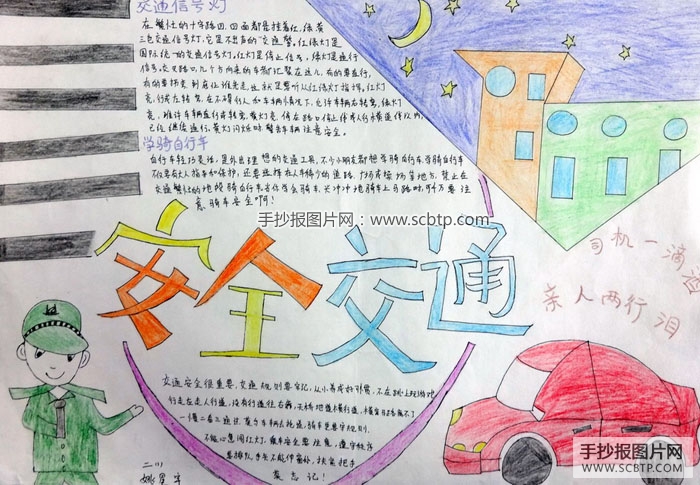 交通信号灯
在繁忙的十字路口,四面都悬挂着红、绿、黄
三色交通信号灯,它是不出声的"交通警"。红绿灯是
国际统一的交通信号灯。红灯是停止信号,绿灯是通行
信号。交叉路口,几个方向来的车都汇聚在这儿,有的要直行,
有的要拐弯,到底让谁先走,这就是要听从红绿灯指挥。红灯
亮,禁止直行或左转弯,在不碍行人和车辆情况下,允许车辆右转弯;绿灯
亮,准许车辆直行或转弯;黄灯亮,停在路口停止线或人行横道线以内,
已经继续通行;黄灯闪烁时,警告车辆注意安全。
学骑自行车
自行车轻巧灵活,是外出理想的交通工具,不少小朋友都想学骑自行车。学骑自行车
不仅要大人指导和保护,还要选择在人车稀少的道路、广场或操场等地方,禁止在
交通繁忙的地段骑自行车。
意骑车安全啊!
手抄报图片网:www.scbtp.com
安全交通
司机一滴酒
亲人两行泪
交通安全很重要,交通规则要牢记,从小养成好习惯,不在路上玩游戏。
行走应走人行道,没有行道往右靠,天桥地道横行道,横穿马路离不了
一慢二看三通过,莫与车辆去抢道。骑车更要守规则,
不能心急闯红灯。乘车安全要注意,遵守秩序
要排队,手头不能伸窗外,扶紧把手
莫忘记!
手抄报图片网
WWW.SCBTP.COM